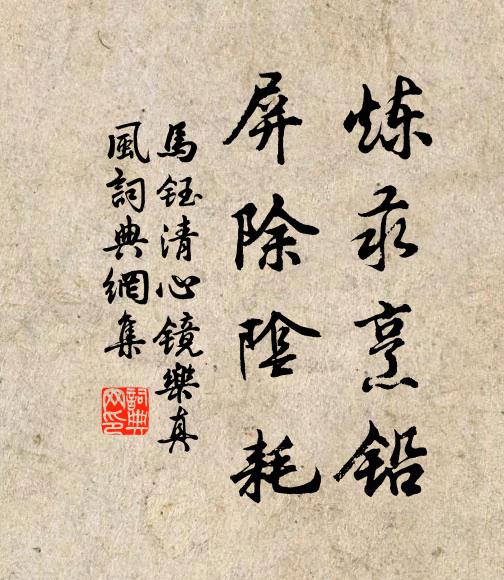 炼汞烹铅
屏除陰耗
馬鈺清心镜樂真
風詞典網集
詞典网印